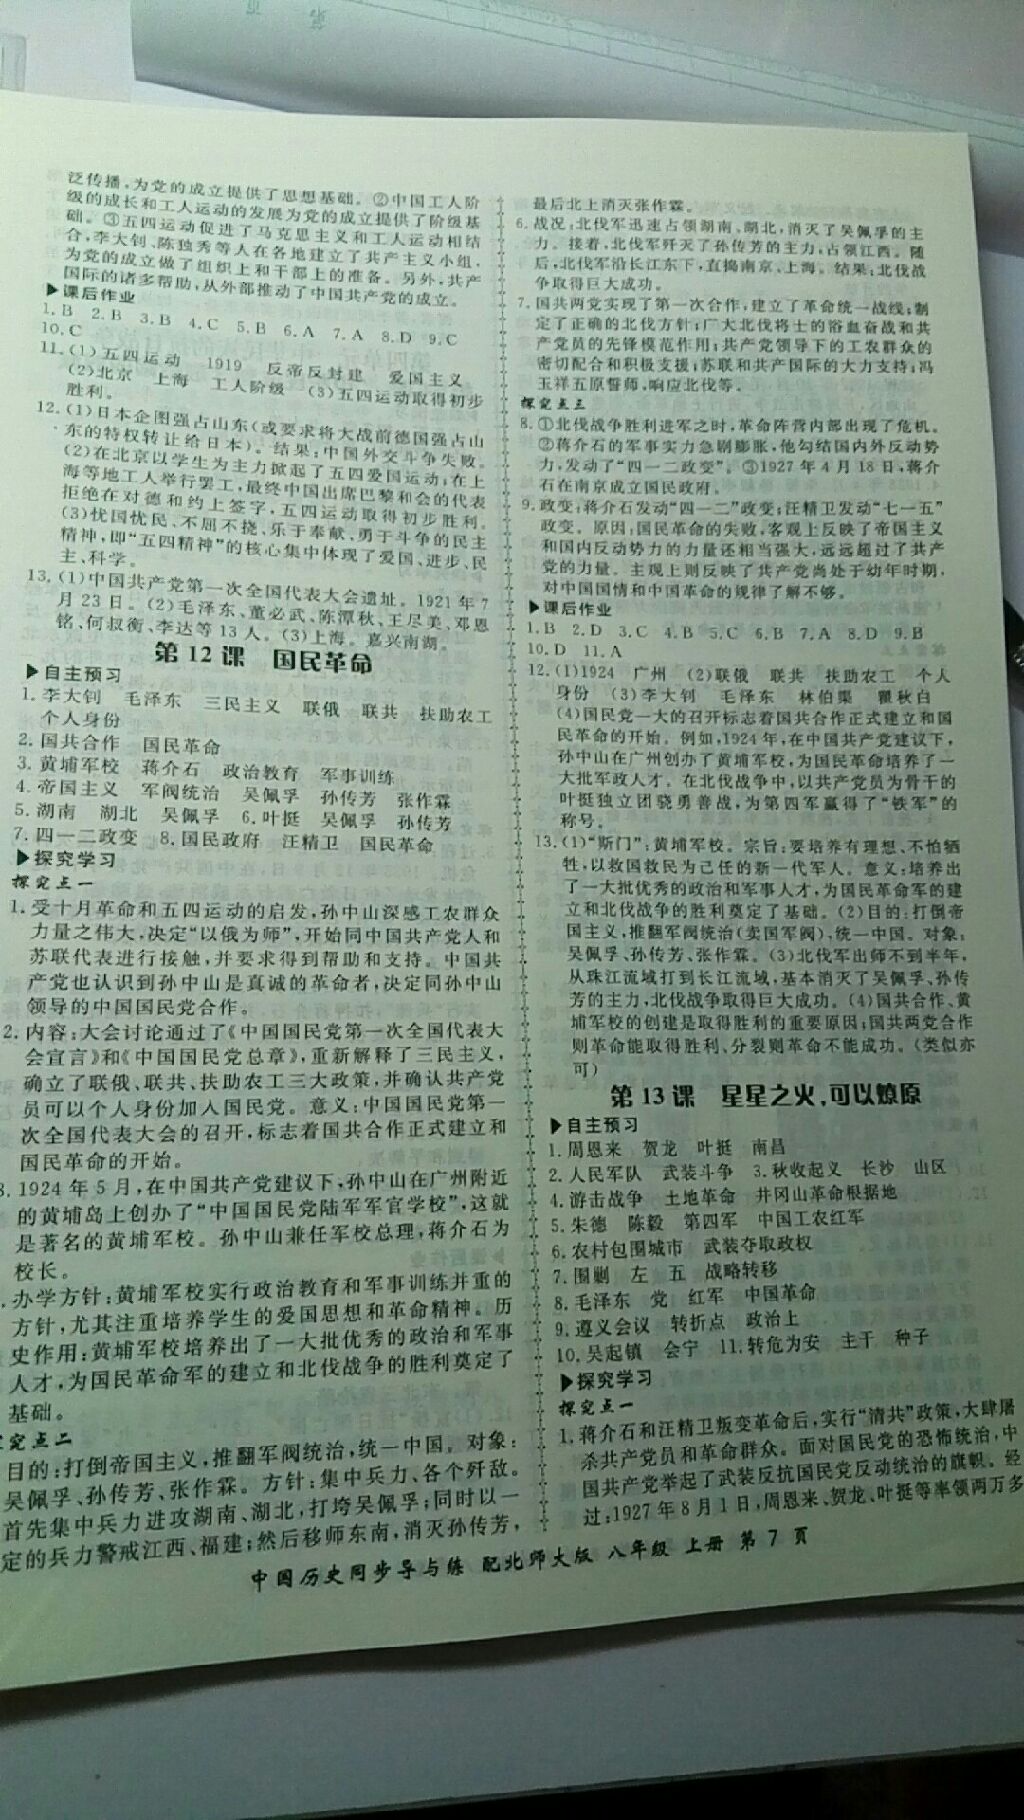 泛传播,为党的成立提供了思想基础。②中国工人阶
级的成长和工人运动的发展为党的成立提供了阶级基
础。③五四运动促进了马克思主义和工人运动相结
合,李大钊、陈独秀等人在各地建立了共产主义小组,
为党的成立做了组织上和干部上的准备。另外,共产
国际的诸多帮助,从外部推动了中国共产党的成立。
▶课后作业
1.B 2.B 3.B 4.C 5.B 6.A 7.A 8.D 9.C
10.C
11.(1)五四运动 1919 反帝反封建 爱国主义
(2)北京 上海 工人阶级 (3)五四运动取得初步
胜利。
12.(1)日本企图强占山东(或要求将大战前德国强占山
东的特权转让给日本)。结果:中国外交斗争失败。
(2)在北京以学生为主力掀起了五四爱国运动;在上
海等地工人举行罢工,最终中国出席巴黎和会的代表
拒绝在对德和约上签字,五四运动取得初步胜利。
(3)忧国忧民、不屈不挠、乐于奉献、勇于斗争的民主
精神,即“五四精神”的核心集中体现了爱国、进步、民
主、科学。
13.(1)中国共产党第一次全国代表大会遗址。1921年7
月23日。(2)毛泽东、董必武、陈潭秋、王尽美、邓恩
铭、何叔衡、李达等13人。(3)上海。嘉兴南湖。
第12课 国民革命
▶自主预习
1.李大钊 毛泽东 三民主义 联俄 联共 扶助农工
个人身份
2.国共合作 国民革命
3.黄埔军校 蒋介石 政治教育 军事训练
4.帝国主义 军阀统治 吴佩孚 孙传芳 张作霖
5.湖南 湖北 吴佩孚 6.叶挺 吴佩孚 孙传芳
7.四一二政变 8.国民政府 汪精卫 国民革命
▶探究学习
探究点一
1.受十月革命和五四运动的启发,孙中山深感工农群众
力量之伟大,决定“以俄为师”,开始同中国共产党人和
苏联代表进行接触,并要求得到帮助和支持。中国共
产党也认识到孙中山是真诚的革命者,决定同孙中山
领导的中国国民党合作。
2.内容:大会讨论通过了《中国国民党第一次全国代表大
会宣言》和《中国国民党总章》,重新解释了三民主义,
确立了联俄、联共、扶助农工三大政策,并确认共产党
员可以个人身份加入国民党。意义:中国国民党第一
次全国代表大会的召开,标志着国共合作正式建立和
国民革命的开始。
3.1924年5月,在中国共产党建议下,孙中山在广州附近
的黄埔岛上创办了“中国国民党陆军军官学校”,这就
是著名的黄埔军校。孙中山兼任军校总理,蒋介石为
校长。
.办学方针:黄埔军校实行政治教育和军事训练并重的
方针,尤其注重培养学生的爱国思想和革命精神。历
史作用:黄埔军校培养出了一大批优秀的政治和军事
人才,为国民革命军的建立和北伐战争的胜利奠定了
基础。
究点二
目的:打倒帝国主义,推翻军阀统治,统一中国。对象:
吴佩孚、孙传芳、张作霖。方针:集中兵力、各个歼敌。
首先集中兵力进攻湖南、湖北,打垮吴佩孚;同时以一
定的兵力警戒江西、福建;然后移师东南,消灭孙传芳,
最后北上消灭张作霖。
6.战况:北伐军迅速占领湖南、湖北,消灭了吴佩孚的主
力。接着,北伐军歼灭了孙传芳的主力,占领江西。随
后,北伐军沿长江东下,直捣南京、上海。结果:北伐战
争取得巨大成功。
7.国共两党实现了第一次合作,建立了革命统一战线;制
定了正确的北伐方针;广大北伐将士的浴血奋战和共
产党员的先锋模范作用;共产党领导下的工农群众的
密切配合和积极支援;苏联和共产国际的大力支持;冯
玉祥五原誓师,响应北伐等。
探究点三
8.①北伐战争胜利进军之时,革命阵营内部出现了危机。
②蒋介石的军事实力急剧膨胀,他勾结国内外反动势
力,发动了“四一二政变”。③1927年4月18日,蒋介
石在南京成立国民政府。
9.政变:蒋介石发动“四一二”政变;汪精卫发动“七一五”
政变。原因:国民革命的失败,客观上反映了帝国主义
和国内反动势力的力量还相当强大,远远超过了共产
党的力量。主观上则反映了共产党尚处于幼年时期,
对中国国情和中国革命的规律了解不够。
▶课后作业
1.B 2.D 3.C 4.B 5.C 6.B 7.A 8.D 9.B
10.D 11.A
12.(1)1924 广州 (2)联俄 联共 扶助农工 个人
身份 (3)李大钊 毛泽东 林伯渠 瞿秋白
(4)国民党一大的召开标志着国共合作正式建立和国
民革命的开始。例如,1924年,在中国共产党建议下,
孙中山在广州创办了黄埔军校,为国民革命培养了一
大批军政人才。在北伐战争中,以共产党员为骨干的
叶挺独立团骁勇善战,为第四军赢得了“铁军”的
称号。
13.(1)“斯门”:黄埔军校。宗旨:要培养有理想、不怕牺
牲,以救国救民为己任的新一代军人。意义:培养出
了一大批优秀的政治和军事人才,为国民革命军的建
立和北伐战争的胜利奠定了基础。(2)目的:打倒帝
国主义,推翻军阀统治(卖国军阀),统一中国。对象:
吴佩孚、孙传芳、张作霖。(3)北伐军出师不到半年,
从珠江流域打到长江流域,基本消灭了吴佩孚、孙传
芳的主力,北伐战争取得巨大成功。(4)国共合作、黄
埔军校的创建是取得胜利的重要原因;国共两党合作
则革命能取得胜利、分裂则革命不能成功。(类似亦
可)
第13课 星星之火,可以燎原
▶自主预习
1.周恩来 贺龙 叶挺 南昌
2.人民军队 武装斗争 3.秋收起义 长沙 山区
4.游击战争 土地革命 井冈山革命根据地
5.朱德 陈毅 第四军 中国工农红军
6.农村包围城市 武装夺取政权
7.围剿 左 五 战略转移
8.毛泽东 党 红军 中国革命
9.遵义会议 转折点 政治上
10.吴起镇 会宁 11.转危为安 主干 种子
▶探究学习
探究点一
1.蒋介石和汪精卫叛变革命后,实行“清共”政策,大肆屠
杀共产党员和革命群众。面对国民党的恐怖统治,中
国共产党举起了武装反抗国民党反动统治的旗帜。经
过:1927年8月1日,周恩来、贺龙、叶挺等率领两万多
中国历史同步导与练 配北师大版 八年级 上册 第7页